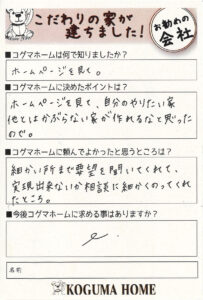 こだわりの家が
建ちました！
お勧めの
会社
■コグマホームは何で知りましたか？
ホームページを見て。
■コグマホームに決めたポイントは？
ホームページを見て、自分のやりたい家
他とはかぶらない家が作れるなと思った
ので。
■コグマホームに頼んでよかったと思うところは？
細かい所まで要望を聞いてくれて、
実現出来ないか相談に細かくのってくれ
たところ。
■今後コグマホームに求める事はありますか？
名前
KOGUMA HOME